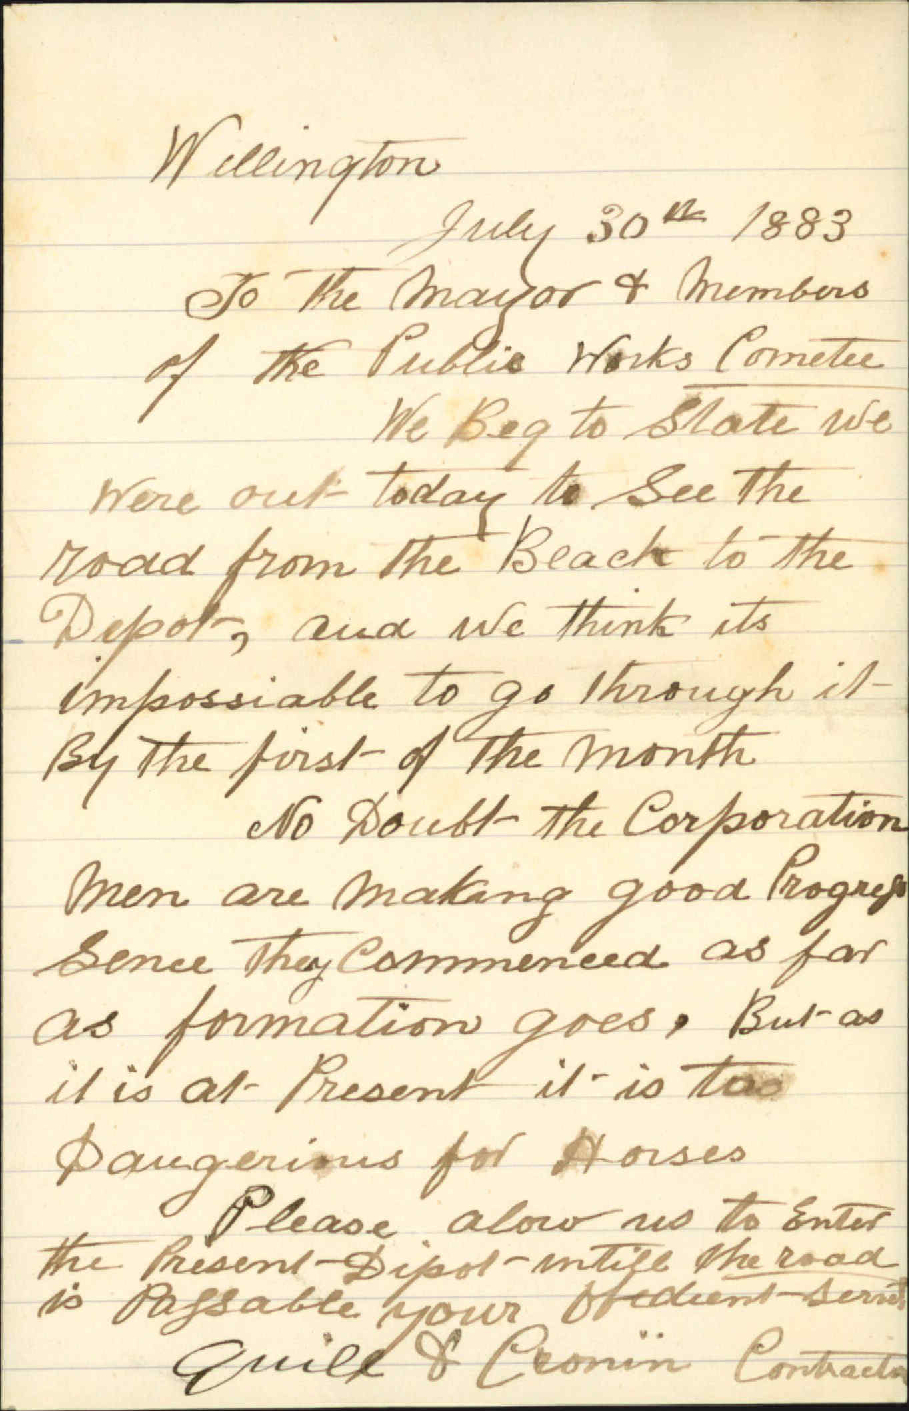 Willington
July 30th 1883
To the Mayor & Members
of the Public Works Cometee
We Beg to State we
were out today to See the
road from the Beach to the
Depot, and we think its
impossiable to go through it
By the first of the month
No Doubt the Corporation
Men are making good Progress
Sence they Commenced as far
as formation goes, But as
it is at Present it is too
Daugerious for Horses
Please alow us to Enter
the Present Dipot untill the road
is Passable your Obedient Servts
Quill & Cronin Contractors